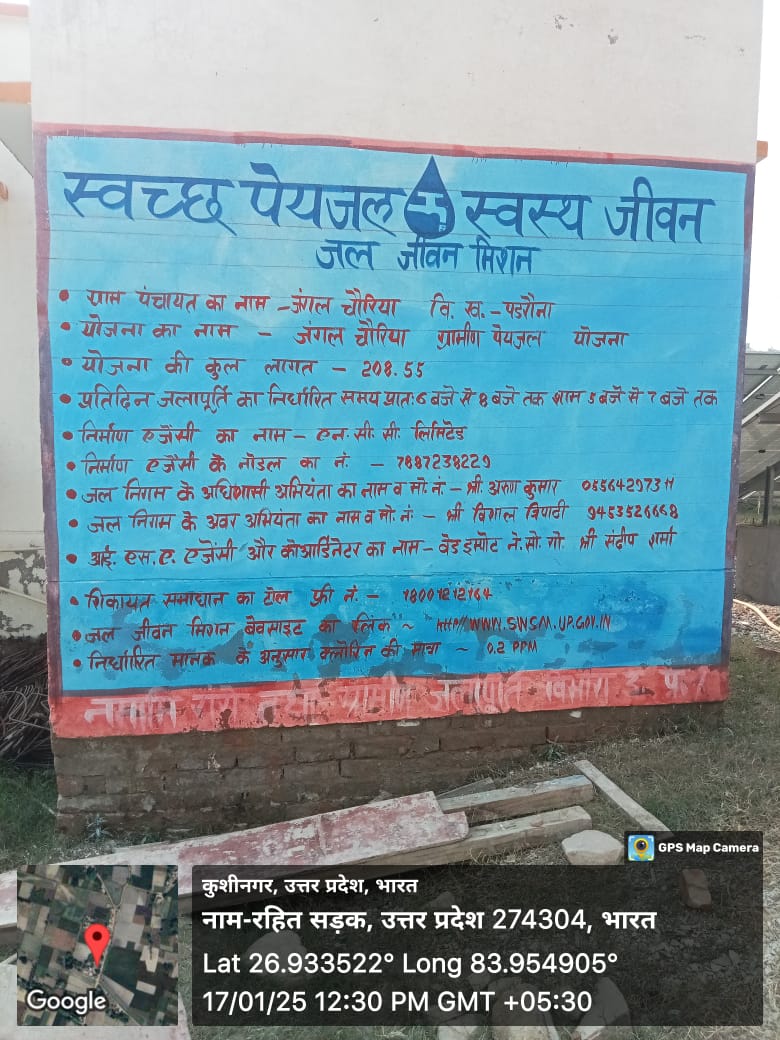 स्वच्छ पेयजल स्वस्थ जीवन
जल जीवन मिशन
• ग्राम पंचायत का नाम - जंगल चौरिया वि. ख. - पडरौना
• योजना का नाम - जंगल चौरिया ग्रामीण पेयजल योजना
• योजना की कुल लागत - 208.55
• प्रतिदिन जलापूर्ति का निर्धारित समय प्रातः 6 बजे से 8 बजे तक शाम 5 बजे से 7 बजे तक
• निर्माण एजेंसी का नाम - एन. सी. सी. लिमिटेड
• निर्माण एजेंसी के नोडल का नं. - 7887238229
• जल निगम के अधिशासी अभियंता का नाम व मो. नं. - श्री. अरुण कुमार 05564297311
• जल निगम के अवर अभियंता का नाम व मो. नं. - श्री विशाल त्रिपाठी 9453526668
• आई. एस. ए. एजेंसी और कोआर्डिनेटर का नाम - वेड इस्पोट ने. सो. गो. श्री संदीप शर्मा
• शिकायत समाधान का टोल फ्री नं. - 18001212164
• जल जीवन मिशन वेबसाइट का लिंक ~ HTTP//WWW.SWSM.UP.GOV.IN
• निर्धारित मानक के अनुसार क्लोरिन की मात्रा ~ 0.2 PPM
नमामि गंगे तथा ग्रामीण जलापूर्ति विभाग उ. प्र.
GPS Map Camera
कुशीनगर, उत्तर प्रदेश, भारत
नाम-रहित सड़क, उत्तर प्रदेश 274304, भारत
Lat 26.933522° Long 83.954905°
17/01/25 12:30 PM GMT +05:30
Google